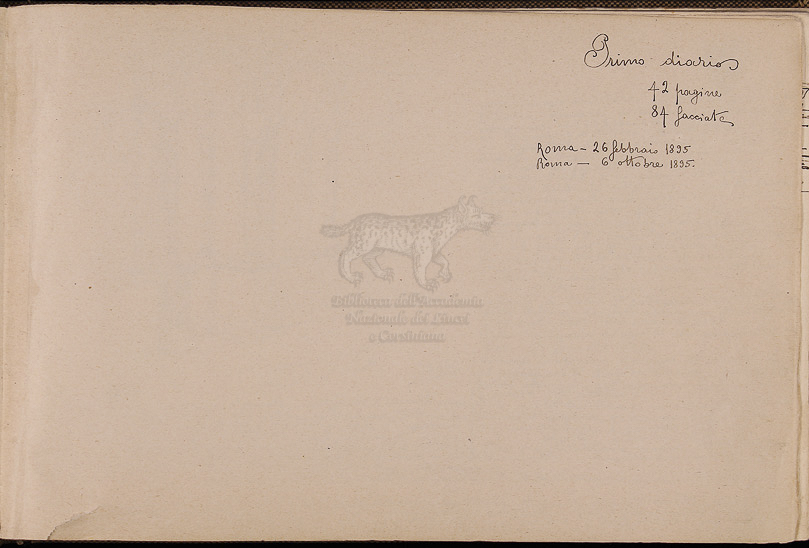 Primo diario
42 pagine
84 facciate
Roma - 26 febbraio 1895
Roma - 6 ottobre 1895.
Biblioteca dell'Accademia
Nazionale dei Lincei
e Corsiniana